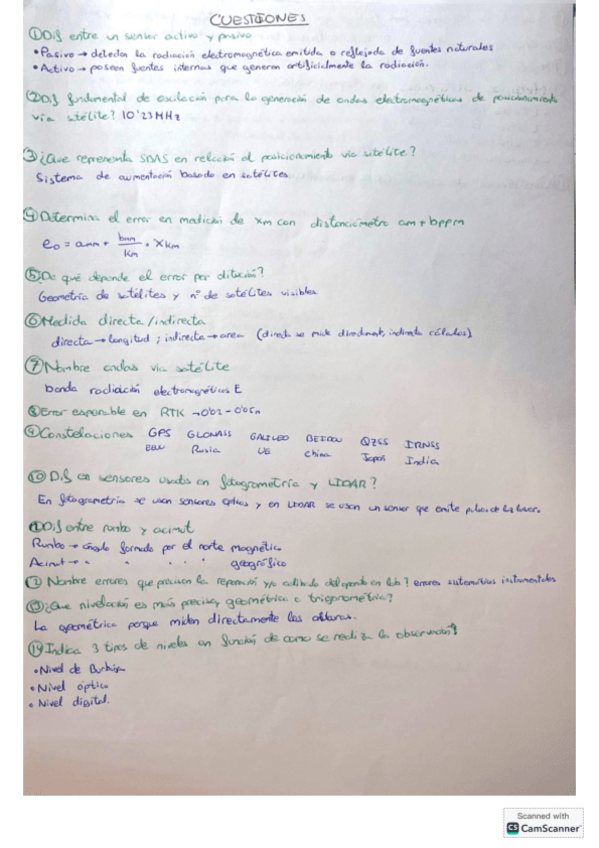 CUESTIONES
① Dif entre un sensor activo y pasivo
• Pasivo → detectan la radiación electromagnética emitida o reflejada de fuentes naturales
• Activo → poseen fuentes internas que generan artificialmente la radiación.
② Dif fundamental de oscilación para la generación de ondas electromagnéticas de posicionamiento
vía satélite? 10'23 MHz
③ ¿Que representa SBAS en relación al posicionamiento vía satélite?
Sistema de aumentación basado en satélites.
④ Determina el error en medición de xm con distanciómetro am + bppm
e₀ = amm + bmm/Km · XKm
⑤ De qué depende el error por dilución?
Geometría de satélites y nº de satélites visibles
⑥ Medida directa/indirecta
directa → longitud ; indirecta → area (directa se mide directament, indirecta cálculos)
⑦ Nombre ondas vía satélite
banda radiación electromagnéticas E
⑧ Error esperable en RTK → 0'02 - 0'05m
⑨ Constelaciones GPS GLONASS GALILEO BEIDOU QZSS IRNSS
EEUU Rusia UE China Japón India
⑩ Dif en sensores usados en fotogrametría y LIDAR?
En fotogrametría se usan sensores ópticos y en LIDAR se usan un sensor que emite pulsos de luz laser.
Dif entre rumbo y acimut
Rumbo → ángulo formado por el norte magnético
Acimut → " " " " " geográfico
Nombre errores que precisan la reparación y/o calibrado del aparato en lab? errores sistemáticos instrumentales
⑬ ¿Que nivelación es más precisa, geométrica o trigonométrica?
La geométrica porque miden directamente las alturas.
⑭ Indica 3 tipos de niveles en función de como se realiza la observación?
• Nivel de Burbuja
• Nivel óptico
• Nivel digital.
Scanned with
CS CamScanner